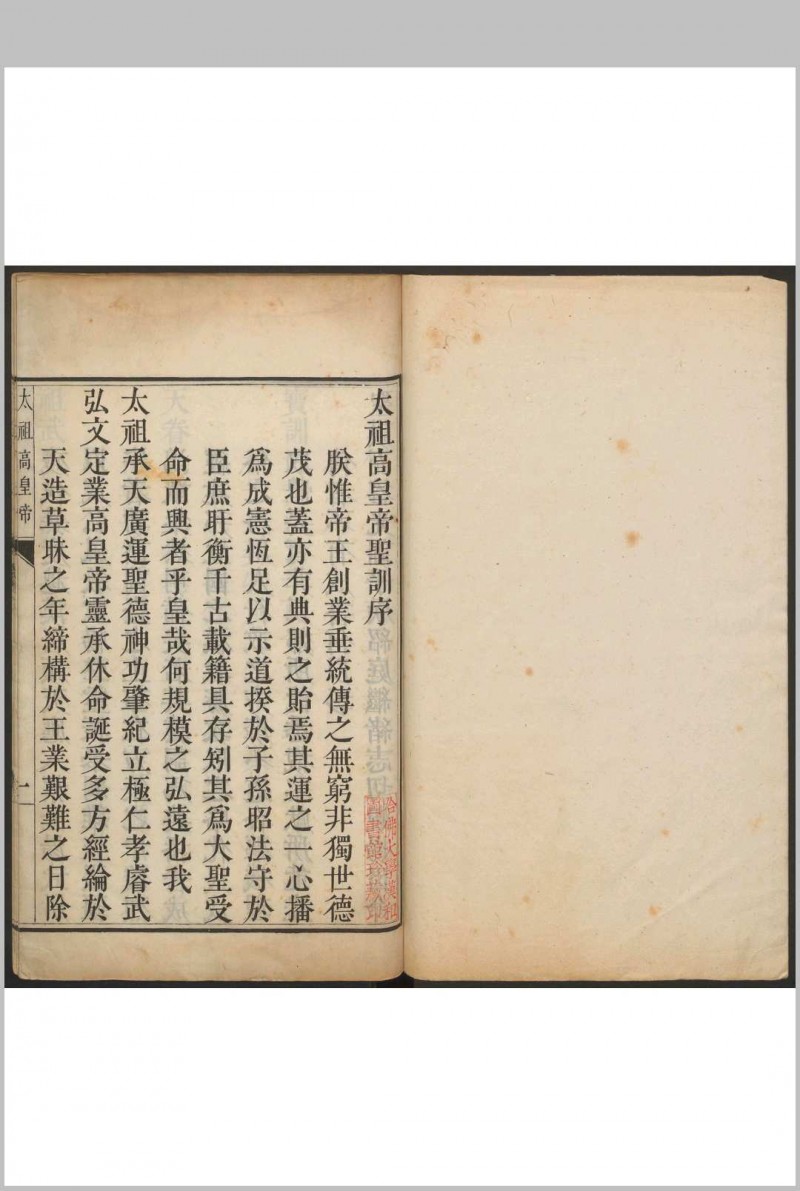 太祖高皇帝聖訓序
朕惟帝王創業垂統傳之無窮非獨世德
茂也蓋亦有典則之貽焉其運之一心播
為成憲恆足以示道揆於子孫昭法守於
臣庶盱衡千古載籍具存矧其為大聖受
命而興者乎皇哉何規模之弘遠也我
太祖承天廣運聖德神功肇紀立極仁孝睿武
弘文定業高皇帝靈承休命誕受多方經綸於
天造草昧之年締構於王業艱難之日除
太祖高皇帝
一